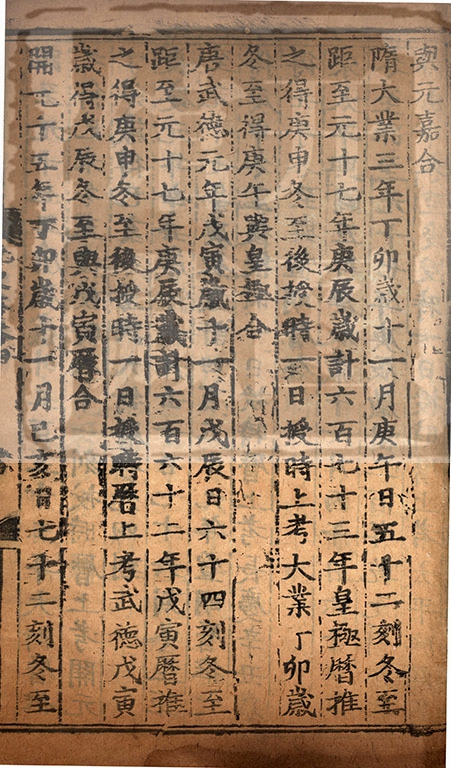 與元嘉合
隋大業三年丁卯歲十一月庚午日五十二刻冬至
距至元十七年庚辰歲計六百七十三年皇極曆推
之得庚申冬至後授時一日授時上考大業丁卯歲
冬至得庚午與皇極合
唐武德元年戊寅歲十一月戊辰日六十四刻冬至
距至元十七年庚辰歲計六百六十二年戊寅曆推
之得庚申冬至後授時一日授時曆上考武德戊寅
歲得戊辰冬至與戊寅曆合
開元十五年丁卯歲十一月己亥日七十二刻冬至